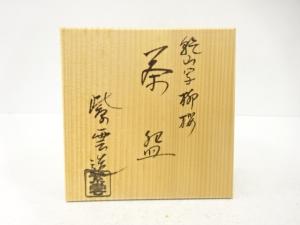 乾山写柳桜
茶盌
紫雲造